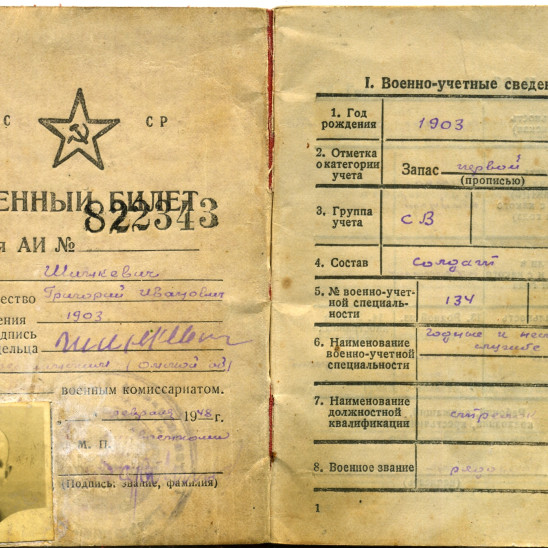 С СР
ЕННЫЙ БИЛЕТ
822343
я АИ №
Шинкевич
ество Григорий Иванович
ения 1903
дпись
дельца
военным комиссариатом.
февраля 1948 г.
М. П.
(Подпись: звание, фамилия)
I. Военно-учетные сведен
1. Год рождения 1903
2. Отметка о категории учета Запас первой
(прописью)
3. Группа учета СВ
4. Состав солдат
5. № военно-учетной специальности 134
6. Наименование военно-учетной специальности годные и
службе
7. Наименование должностной квалификации стрелок
8. Военное звание рядо
1